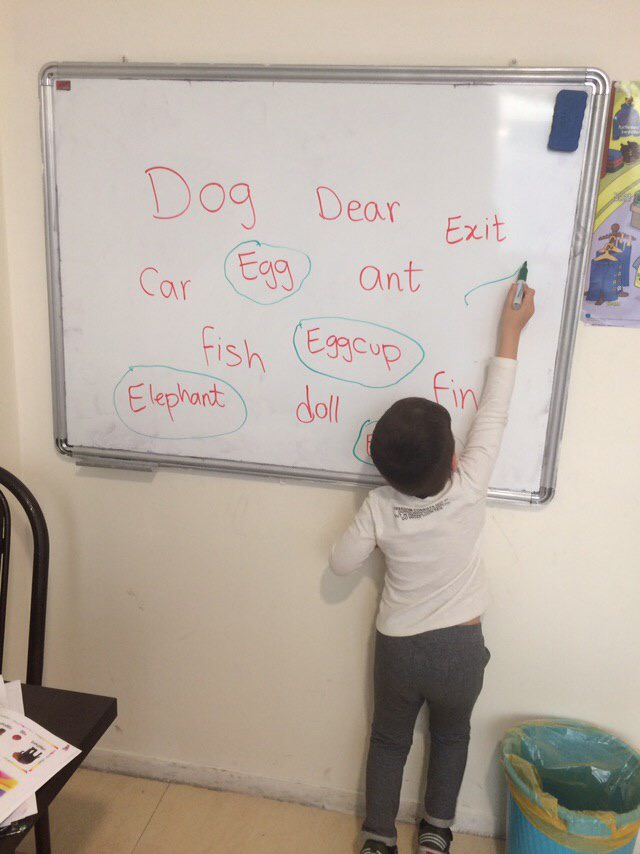 Dog Dear
Exit
Car Egg ant
fish Eggcup
Elephant doll